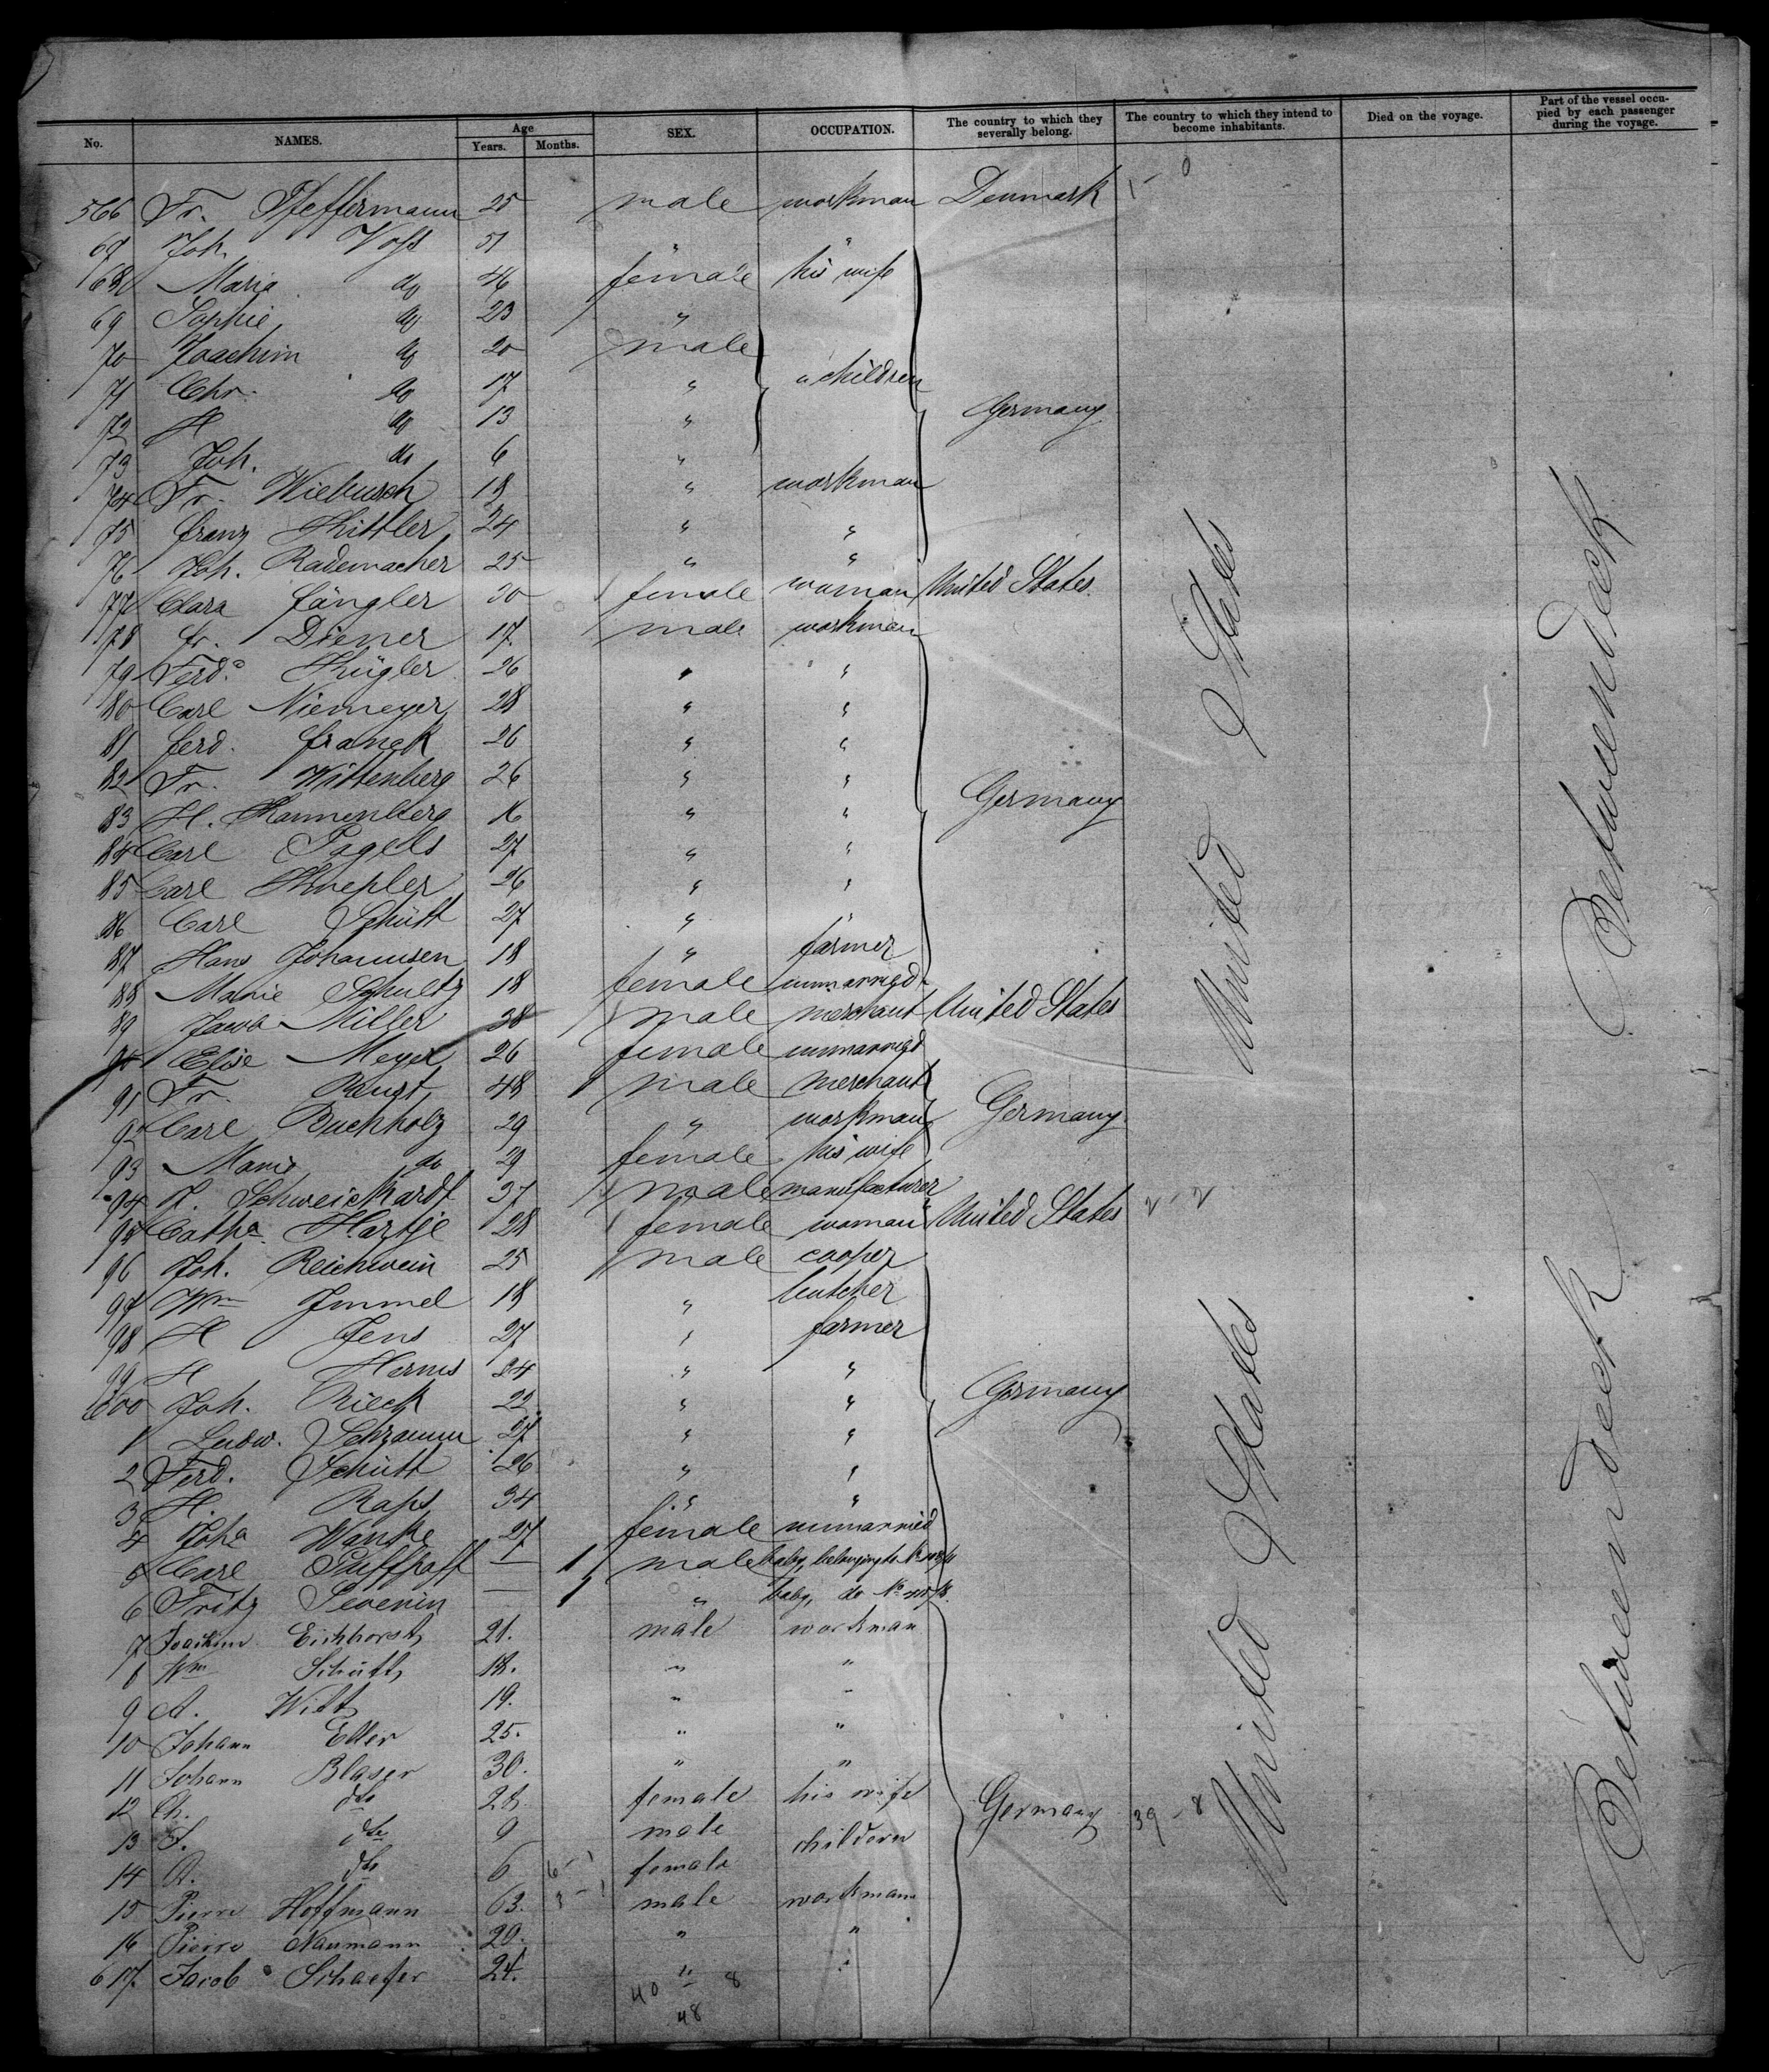 No. NAMES. Age Years. Months. SEX. OCCUPATION. The country to which they severally belong. The country to which they intend to become inhabitants. Died on the voyage. Part of the vessel occupied by each passenger during the voyage.
566 Fr. Pfeffermann 25 male workman Denmark 1-0
67 Joh. Voss 51 " "
68 Maria do 46 female his wife
69 Sophie do 23 "
70 Joachim do 20 male
71 Chr. do 17 " " children
72 H do 13 " Germany
73 Joh. do 6 "
74 Fr. Wiebusch 18 " workman
75 Franz Kittler 24 " "
76 Joh. Rademacher 25 " "
77 Clara Füngler 30 female woman United States
78 Fr. Diener 17 male workman
79 Ferd. Kügler 26 " "
80 Carl Niemeyer 28 " "
81 Ferd. Franck 26 " "
82 Fr. Wittenberg 26 " "
83 H. Kannenberg 16 " " Germany
84 Carl Pagels 27 " "
85 Carl Knepler 26 " "
86 Carl Schütt 27 " "
87 Hans Johannsen 18 " farmer
88 Marie Schultz 18 female unmarried
89 Jacob Miller 38 male merchant United States
90 Elise Meyer 26 female unmarried
91 Fr. Rust 48 male merchant
92 Carl Buchholz 29 " workman Germany
93 Marie do 29 female his wife
94 Schweickardt 37 male manufacturer
95 Cath. Hartje 28 female woman United States 2-2
96 Joh. Reichwein 25 male cooper
97 Wm Immel 18 " butcher
98 H Jens 27 " farmer
99 H Harms 24 " "
600 Joh. Rieck 22 " " Germany
1 Ludw. Schramm 27 " "
2 Ferd. Schütt 26 " "
3 H. Raps 34 " "
4 Joha Wanke 27 female unmarried
5 Carl Puffpaff — 1 male baby, belonging to No
6 Fritz Severin — 1 " baby, do No
7 Joachim Eichhorst 21. male workman
8 Wm Schütt 18. " "
9 A. Witt 19. " "
10 Johann Eller 25. " "
11 Johann Blaser 30. " "
12 Ch. dto 28. female his wife
13 F. dto 9 male children Germany 39-8
14 A. dto 6 6-1 female
15 Pierre Hoffmann 63. 3-1 male workman
16 Pierre Naumann 20. " "
617 Jacob Schaefer 24. " "
40 - 8
48
United States
United States
Between Deck
Between Deck